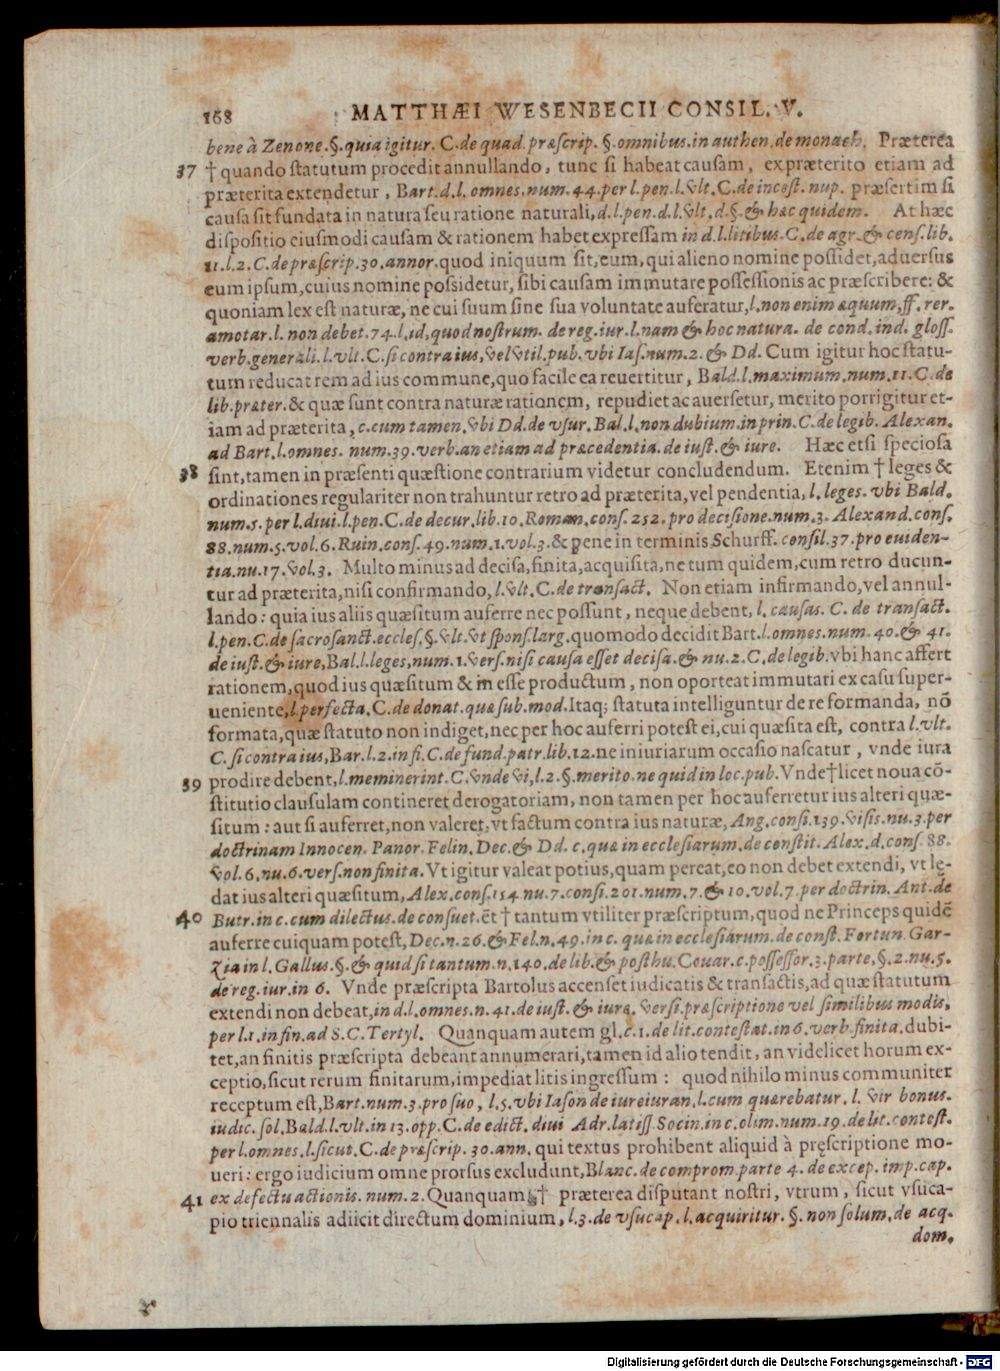 168 MATTHÆI WESENBECII CONSIL. V.
bene à Zenone. §. quia igitur. C. de quad. præscrip. §. omnibus. in authen. de monach. Præterea
37 † quando statutum procedit annullando, tunc si habeat causam, ex præterito etiam ad
præterita extendetur, Bart. d. l. omnes. num. 44. per l. pen. l. vlt. C. de incest. nup. præsertim si
causa sit fundata in natura seu ratione naturali, d. l. pen. d. l. vlt. d. §. & hac quidem. At hæc
dispositio eiusmodi causam & rationem habet expressam in d. l. litibus. C. de agr. & cens. lib.
11. l. 2. C. de præscrip. 30. annor. quod iniquum sit, eum, qui alieno nomine possidet, aduersus
eum ipsum, cuius nomine possidetur, sibi causam immutare possessionis ac præscribere: &
quoniam lex est naturæ, ne cui suum sine sua voluntate auferatur, l. non enim æquum, ff. rer.
amotar. l. non debet. 74. l. id, quod nostrum. de reg. iur. l. nam & hoc natura. de cond. ind. gloss.
verb. generali. l. vlt. C. si contra ius, vel vtil. pub. vbi Ias. num. 2. & Dd. Cum igitur hoc statu-
tum reducat rem ad ius commune, quo facile ea reuertitur, Bald. l. maximum. num. 11. C. de
lib. præter. & quæ sunt contra naturæ rationem, repudiet ac auersetur, merito porrigitur et-
iam ad præterita, c. cum tamen. vbi Dd. de vsur. Bal. l. non dubium. in prin. C. de legib. Alexan.
ad Bart. l. omnes. num. 39. verb. an etiam ad præcedentia. de iust. & iure. Hæc etsi speciosa
38 sint, tamen in præsenti quæstione contrarium videtur concludendum. Etenim † leges &
ordinationes regulariter non trahuntur retro ad præterita, vel pendentia, l. leges. vbi Bald.
num. 5. per l. diui. l. pen. C. de decur. lib. 10. Roman. cons. 252. pro decisione. num. 3. Alexand. cons.
88. num. 5. vol. 6. Ruin. cons. 49. num. 1. vol. 3. & pene in terminis Schurff. consil. 37. pro euiden-
tia. nu. 17. vol. 3. Multo minus ad decisa, finita, acquisita, ne tum quidem, cum retro ducun-
tur ad præterita, nisi confirmando, l. vlt. C. de transact. Non etiam infirmando, vel annul-
lando: quia ius aliis quæsitum auferre nec possunt, neque debent, l. causas. C. de transact.
l. pen. C. de sacrosanct. eccles. §. vlt. vt spons. larg. quomodo decidit Bart. l. omnes. num. 40. & 41.
de iust. & iure, Bal. l. leges, num. 1. vers. nisi causa esset decisa. & nu. 2. C. de legib. vbi hanc affert
rationem, quod ius quæsitum & in esse productum, non oporteat immutari ex casu super-
ueniente, l. perfecta. C. de donat. quæ sub. mod. Itaq; statuta intelliguntur de re formanda, nō
formata, quæ statuto non indiget, nec per hoc auferri potest ei, cui quæsita est, contra l. vlt.
C. si contra ius, Bar. l. 2. in fi. C. de fund. patr. lib. 12. ne iniuriarum occasio nascatur, vnde iura
39 prodire debent, l. meminerint. C. vnde vi, l. 2. §. merito. ne quid in loc. pub. Vnde † licet noua cō-
stitutio clausulam contineret derogatoriam, non tamen per hoc auferretur ius alteri quæ-
situm: aut si auferret, non valeret, vt factum contra ius naturæ, Ang. consi. 139. visis. nu. 3. per
doctrinam Innocen. Panor. Felin. Dec. & Dd. c. quæ in ecclesiarum. de constit. Alex. d. cons. 88.
vol. 6. nu. 6. vers. non finita. Vt igitur valeat potius, quam pereat, eo non debet extendi, vt lę-
dat ius alteri quæsitum, Alex. cons. 154. nu. 7. consi. 201. num. 7. & 10. vol. 7. per doctrin. Ant. de
40 Butr. in c. cum dilectus. de consuet. ēt † tantum vtiliter præscriptum, quod ne Princeps quidē
auferre cuiquam potest, Dec. n. 26. & Fel. n. 49. in c. quæ in ecclesiarum. de const. Fortun. Gar-
zia in l. Gallus. §. & quid si tantum. n. 140. de lib. & posthu. Couar. c. possessor. 3. parte, §. 2. nu. 5.
de reg. iur. in 6. Vnde præscripta Bartolus accenset iudicatis & transactis, ad quæ statutum
extendi non debeat, in d. l. omnes. n. 41. de iust. & iure. versi. præscriptione vel similibus modis,
per l. 1. in fin. ad S. C. Tertyl. Quanquam autem gl. c. 1. de lit. contestat. in 6. verb. finita. dubi-
tet, an finitis præscripta debeant annumerari, tamen id alio tendit, an videlicet horum ex-
ceptio, sicut rerum finitarum, impediat litis ingressum: quod nihilo minus communiter
receptum est, Bart. num. 3. pro suo, l. 5. vbi Iason de iureiuran. l. cum quærebatur. l. vir bonus.
iudic. sol. Bald. l. vlt. in 13. opp. C. de edict. diui Adr. latiss. Socin. in c. olim. num. 19. de lit. contest.
per l. omnes. l. sicut. C. de præscrip. 30. ann. qui textus prohibent aliquid à pręscriptione mo-
ueri: ergo iudicium omne prorsus excludunt, Blanc. de comprom. parte 4. de excep. imp. cap.
41 ex defectu actionis. num. 2. Quanquam † præterea disputant nostri, vtrum, sicut vsuca-
pio triennalis adiicit directum dominium, l. 3. de vsucap. l. acquiritur. §. non solum. de acq.
dom.
Digitalisierung gefördert durch die Deutsche Forschungsgemeinschaft - DFG